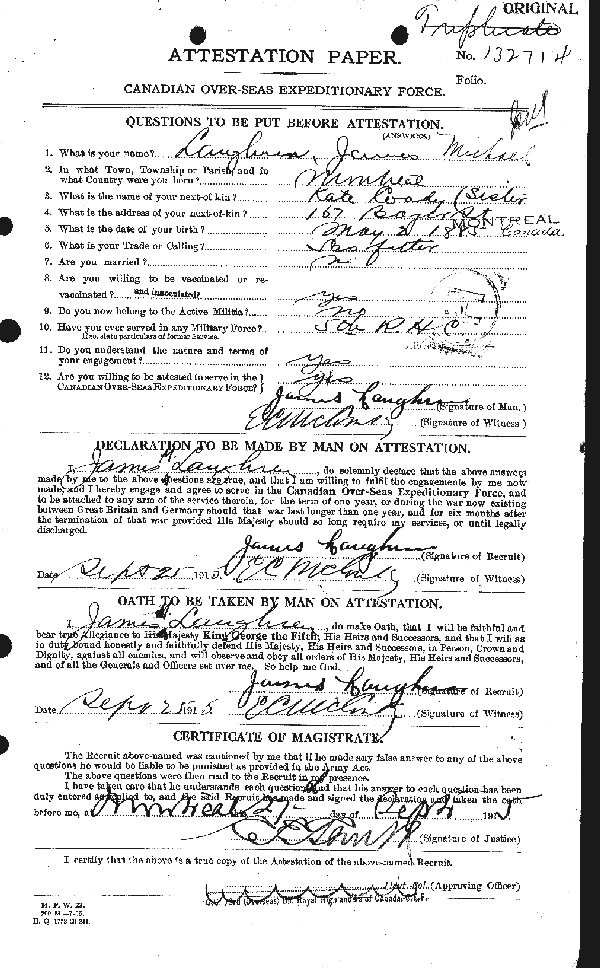 ORIGINAL
Triplicate
ATTESTATION PAPER.
No. 132714
Folio.
CANADIAN OVER-SEAS EXPEDITIONARY FORCE.
QUESTIONS TO BE PUT BEFORE ATTESTATION.
(ANSWERS)
1. What is your name? Laughren, James Michael
2. In what Town, Township or Parish, and in what Country were you born? Montreal
3. What is the name of your next-of-kin? Kate Coady (Sister
4. What is the address of your next-of-kin? 167 St MONTREAL Canada
5. What is the date of your birth? May 2
6. What is your Trade or Calling? fitter
7. Are you married? No
8. Are you willing to be vaccinated or re-vaccinated? and inoculated? Yes
9. Do you now belong to the Active Militia? No
10. Have you ever served in any Military Force? R H C
If so, state particulars of former Service.
11. Do you understand the nature and terms of your engagement? Yes
12. Are you willing to be attested to serve in the CANADIAN OVER-SEAS EXPEDITIONARY FORCE? Yes
James Laughren (Signature of Man.)
(Signature of Witness)
DECLARATION TO BE MADE BY MAN ON ATTESTATION.
I, James M Laughren, do solemnly declare that the above answers
made by me to the above questions are true, and that I am willing to fulfil the engagements by me now
made, and I hereby engage and agree to serve in the Canadian Over-Seas Expeditionary Force, and
to be attached to any arm of the service therein, for the term of one year, or during the war now existing
between Great Britain and Germany should that war last longer than one year, and for six months after
the termination of that war provided His Majesty should so long require my services, or until legally
discharged.
James Laughren (Signature of Recruit)
Date Sept 21 1915 (Signature of Witness)
OATH TO BE TAKEN BY MAN ON ATTESTATION.
I, James M Laughren, do make Oath, that I will be faithful and
bear true Allegiance to His Majesty King George the Fifth, His Heirs and Successors, and that I will as
in duty bound honestly and faithfully defend His Majesty, His Heirs and Successors, in Person, Crown and
Dignity, against all enemies, and will observe and obey all orders of His Majesty, His Heirs and Successors,
and of all the Generals and Officers set over me. So help me God.
James Laughren (Signature of Recruit)
Date Sept 1915 (Signature of Witness)
CERTIFICATE OF MAGISTRATE.
The Recruit above-named was cautioned by me that if he made any false answer to any of the above
questions he would be liable to be punished as provided in the Army Act.
The above questions were then read to the Recruit in my presence.
I have taken care that he understands each question, and that his answer to each question has been
duly entered as replied to, and the said Recruit has made and signed the declaration and taken the oath
before me, at Montreal 21 day of Sept 1915
(Signature of Justice)
I certify that the above is a true copy of the Attestation of the above-named Recruit.
Lieut. Col. (Approving Officer)
O.C. 73rd (Overseas) Bn. Royal Highlanders of Canada, C.E.F.
M. F. W. 23.
H. Q. 1772-